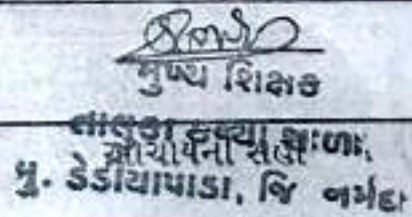 મુખ્ય શિક્ષક
તાલુકા કન્યા શાળા,
આચાર્યની સહી
મુ. ડેડીયાપાડા, જિ નર્મદા